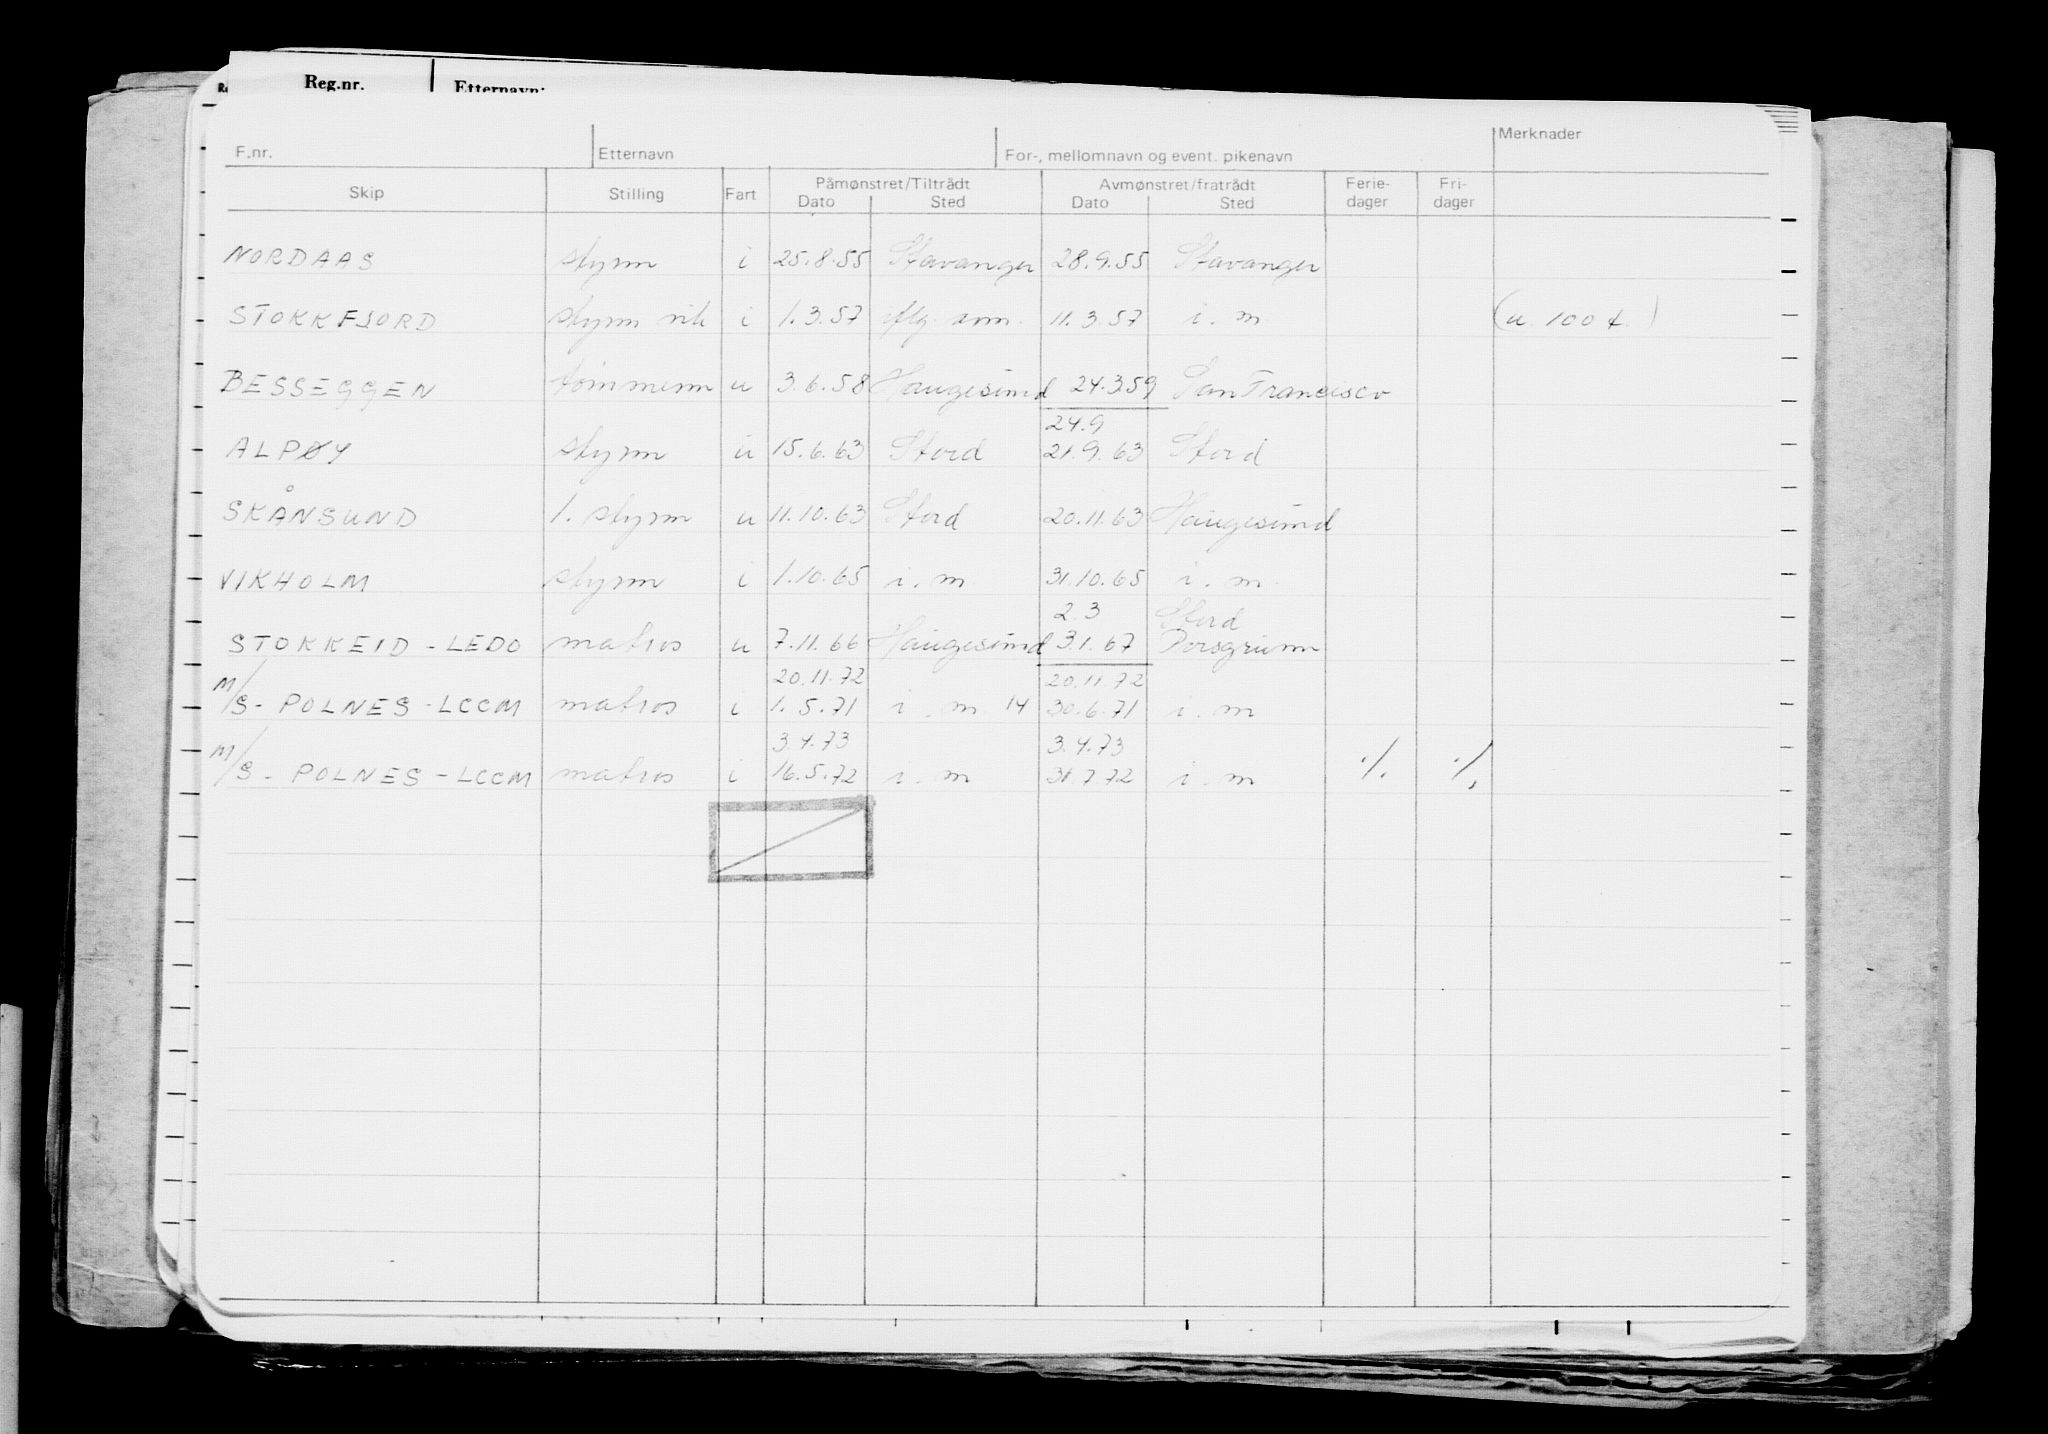 Reg.nr. Etternavn:
F.nr. Etternavn For-, mellomnavn og event. pikenavn Merknader
Skip Stilling Fart Påmønstret/Tiltrådt Avmønstret/fratrådt Ferie- Fri-
Dato Sted Dato Sted dager dager
NORDAAS styrm i 25.8.55 Stavanger 28.9.55 Stavanger
STOKKFJORD styrm vik i 1.3.57 iflg. arm. 11.3.57 i. m (u. 100 t.)
BESSEGGEN tømmerm u 3.6.58 Haugesund 24.3.59 San Francisco
24.9
ALPØY styrm u 15.6.63 Stord 21.9.63 Stord
SKÅNSUND 1. styrm u 11.10.63 Stord 20.11.63 Haugesund
VIKHOLM styrm i 1.10.65 i. m. 31.10.65 i. m.
2.3 Stord
STOKKEID - LEDO matros u 7.11.66 Haugesund 3.1.67 Porsgrunn
20.11.72 20.11.72
M/S - POLNES - LCCM matros i 1.5.71 i. m 14 30.6.71 i. m
3.4.73 3.4.73
M/S - POLNES - LCCM matros i 16.5.72 i. m 31.7.72 i. m ./. ./.